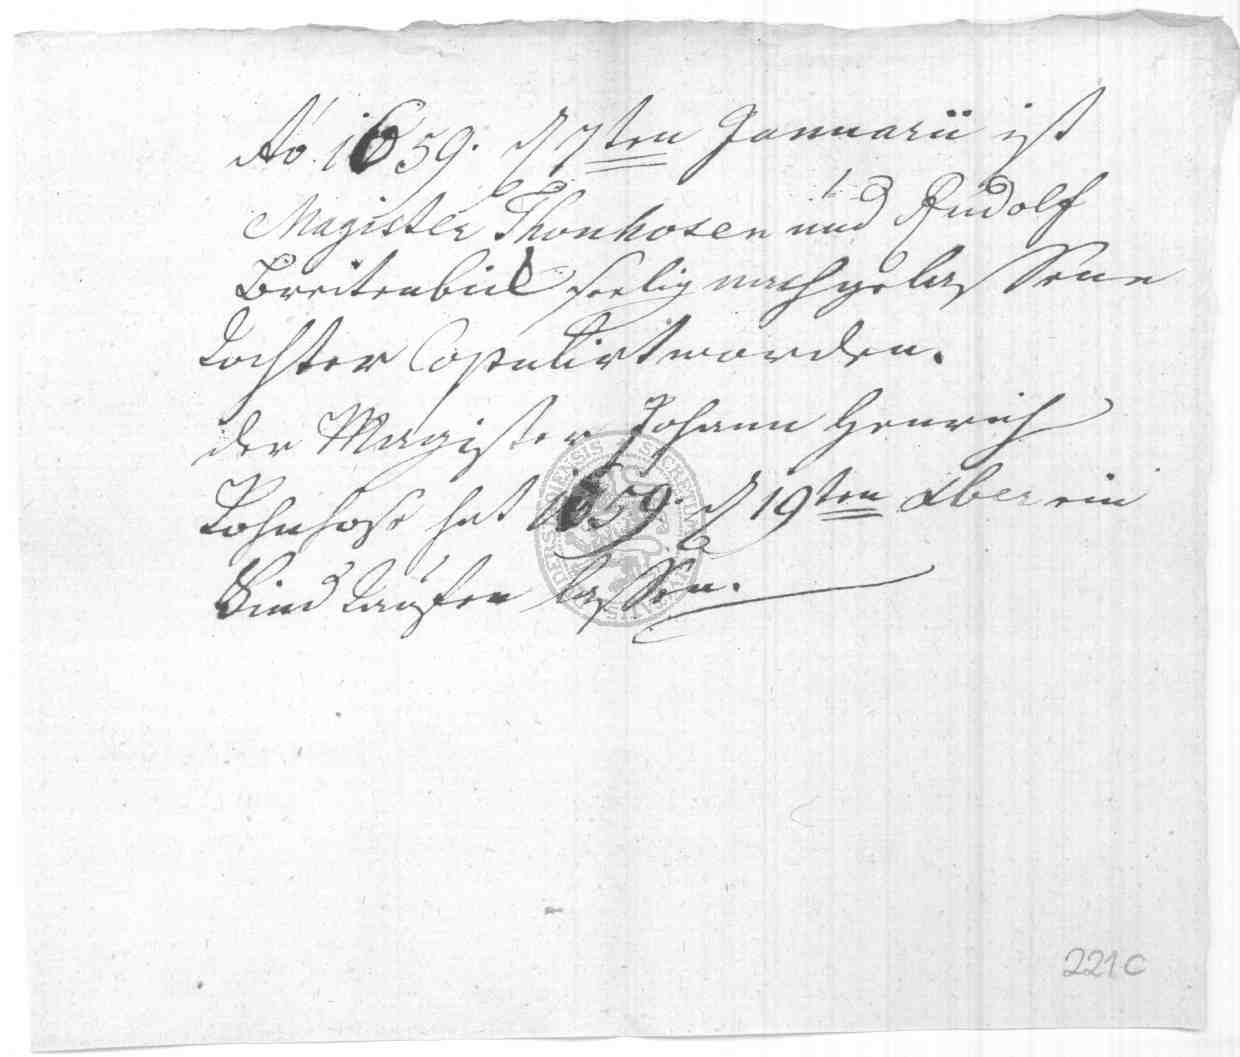 Ao. 1659. d 7ten Januarii ist
Magister Thonhosen und Rudolf
Breitenbiel seelig nachgelassene
Tochter Copulirt worden.
der Magister Johann Henrich
Tohnhose hat 1659. d 19ten Xber ein
Kind Taufen lassen.
221c